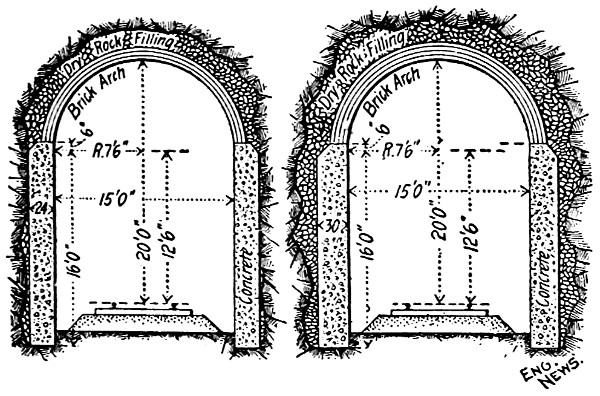 Dry Rock Filling
Brick Arch
6"
R.7'6"
24
15'0"
16'0"
20'0"
12'6"
Concrete
Dry Rock Filling
Brick Arch
6"
R.7'6"
30
15'0"
16'0"
20'0"
12'6"
Concrete
ENG.
NEWS.